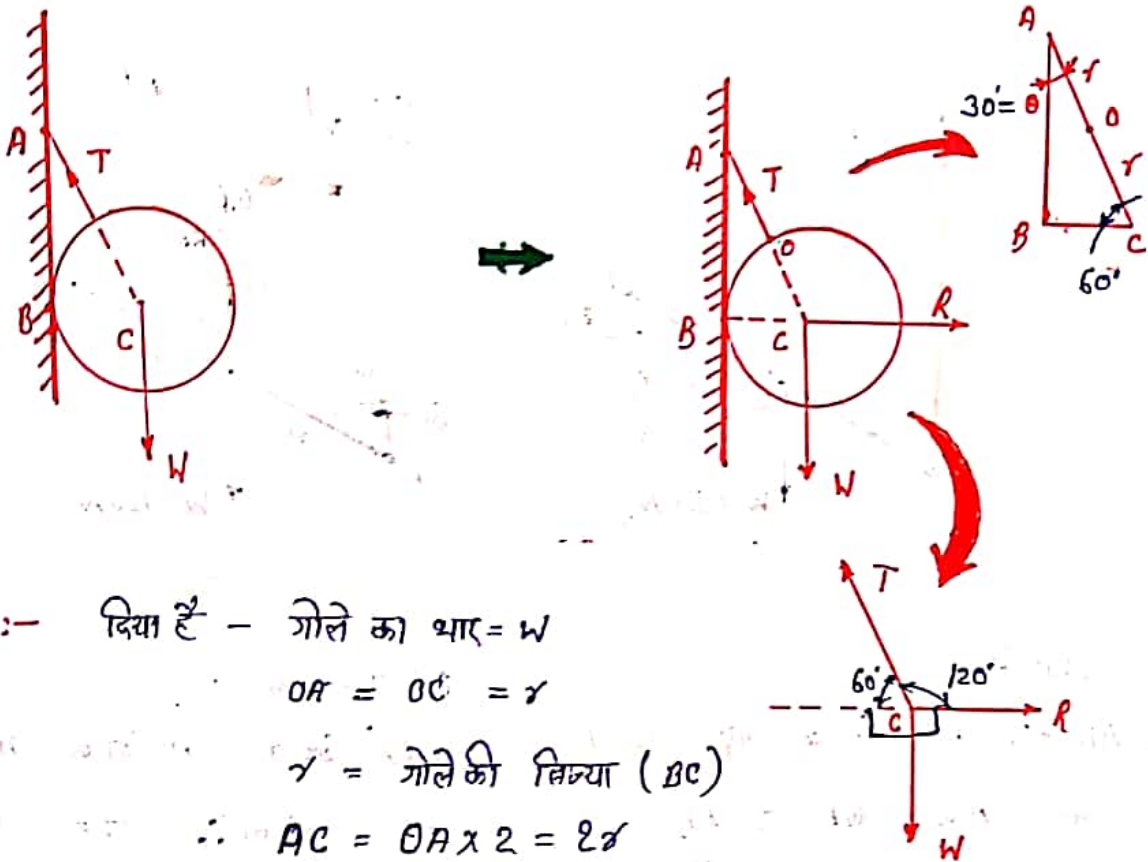 A
T
B
C
W
A
T
O
B
C
R
W
A
30°= θ
r
O
r
B
C
60°
T
60°
120°
C
R
W
:- दिया है - गोले का भार = W
OA = OC = r
r = गोले की त्रिज्या ( BC )
∴ AC = OA x 2 = 2r